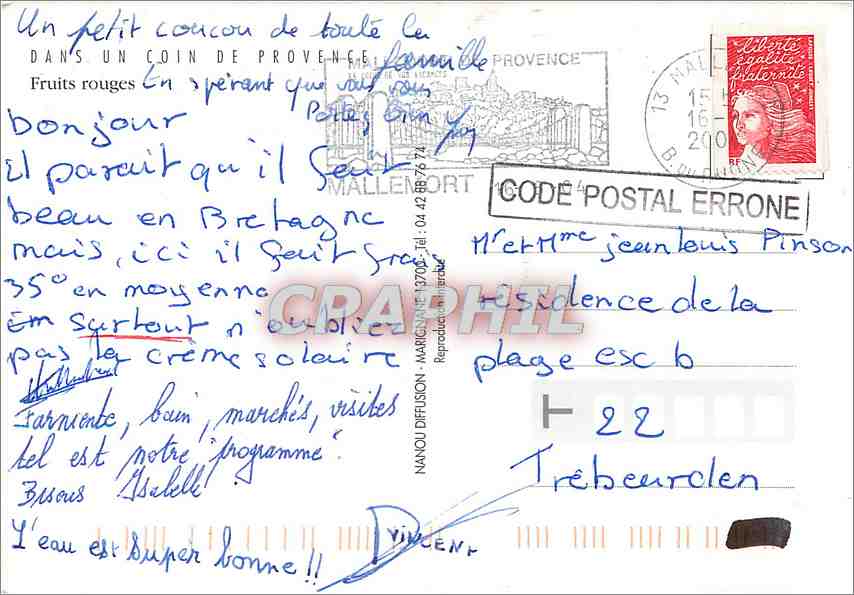 Un petit coucou de toute la
famille
DANS UN COIN DE PROVENCE
Fruits rouges
En spérant que vous vous
Portez bien
bonjour
il parait qu'il fait
beau en Bretagne
mais, ici il fait
35° en moyenne
Em surtout n'oubliez
pas la crème solaire
Farniente, bain, marchés, visites
tel est notre "programme".
Bisous Isabelle
L'eau est super bonne !!
VINCENT
MALLEMORT PROVENCE
MALLEMORT
16
13 MALL
15
16
200
B. DU RHONE
liberté
égalité
fraternité
RF
CODE POSTAL ERRONE
NANOU DIFFUSION - MARIGNANE 13700 - Tél : 04 42 88 76 74
Reproduction interdite
CPAPHIL
Mr et Mme jean louis Pinson
résidence de la
plage esc b
22
Trébeurden